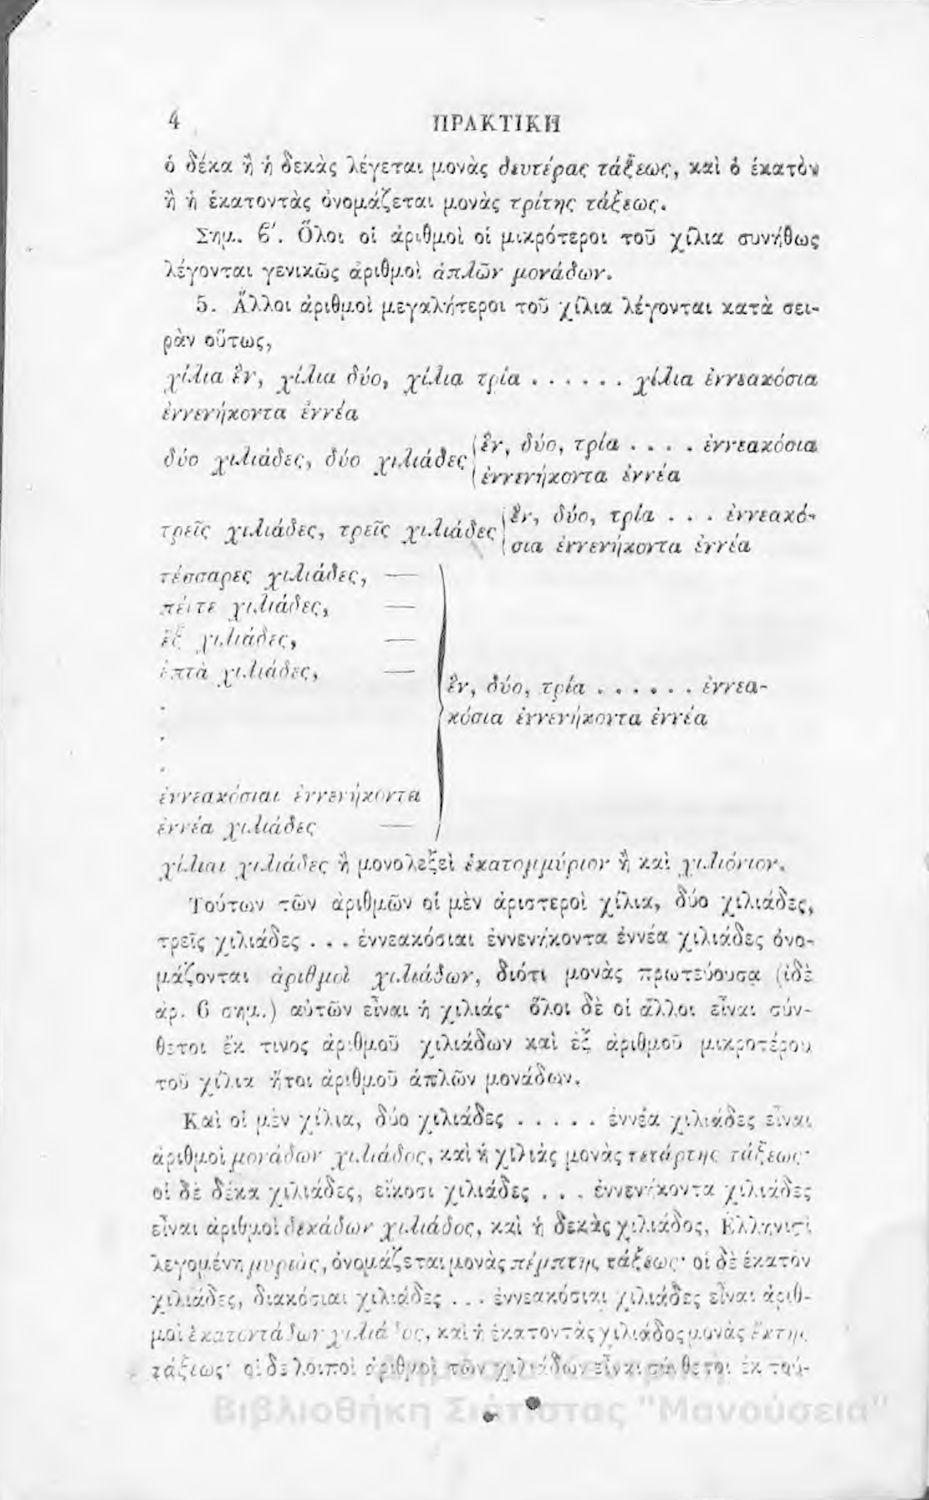 4 ΠΡΑΚΤΙΚΗ
ὁ δέκα ἢ ἡ δεκὰς λέγεται μονὰς δευτέρας τάξεως, καὶ ὁ ἑκατὸν
ἢ ἡ ἑκατοντὰς ὀνομάζεται μονὰς τρίτης τάξεως.
Σημ. β'. Ὅλοι οἱ ἀριθμοὶ οἱ μικρότεροι τοῦ χίλια συνήθως
λέγονται γενικῶς ἀριθμοὶ ἁπλῶν μονάδων.
5. Ἄλλοι ἀριθμοὶ μεγαλήτεροι τοῦ χίλια λέγονται κατὰ σει-
ρὰν οὕτως,
χίλια ἓν, χίλια δύο, χίλια τρία . . . . . . χίλια ἐννεακόσια
ἐννενήκοντα ἐννέα
δύο χιλιάδες, δύο χιλιάδες ἓν, δύο, τρία . . . . ἐννεακόσια
ἐννενήκοντα ἐννέα
τρεῖς χιλιάδες, τρεῖς χιλιάδες ἓν, δύο, τρία . . . ἐννεακό-
σια ἐννενήκοντα ἐννέα
τέσσαρες χιλιάδες, —
πέντε χιλιάδες, —
ἓξ χιλιάδες, —
ἑπτὰ χιλιάδες, —
ἓν, δύο, τρία . . . . . . ἐννεα-
κόσια ἐννενήκοντα ἐννέα
.
.
.
ἐννεακόσιαι ἐννενήκοντα
ἐννέα χιλιάδες —
χίλιαι χιλιάδες ἢ μονολεξεὶ ἑκατομμύριον ἢ καὶ χιλιόνιον.
Τούτων τῶν ἀριθμῶν οἱ μὲν ἀριστεροὶ χίλια, δύο χιλιάδες,
τρεῖς χιλιάδες . . . ἐννεακόσιαι ἐννενήκοντα ἐννέα χιλιάδες ὀνο-
μάζονται ἀριθμοὶ χιλιάδων, διότι μονὰς πρωτεύουσα (ἰδὲ
ἀρ. 6 σημ.) αὐτῶν εἶναι ἡ χιλιάς· ὅλοι δὲ οἱ ἄλλοι εἶναι σύν-
θετοι ἔκ τινος ἀριθμοῦ χιλιάδων καὶ ἐξ ἀριθμοῦ μικροτέρου
τοῦ χίλια ἤτοι ἀριθμοῦ ἁπλῶν μονάδων.
Καὶ οἱ μὲν χίλια, δύο χιλιάδες . . . . . ἐννέα χιλιάδες εἶναι
ἀριθμοὶ μονάδων χιλιάδος, καὶ ἡ χιλιὰς μονὰς τετάρτης τάξεως·
οἱ δὲ δέκα χιλιάδες, εἴκοσι χιλιάδες . . . ἐννενήκοντα χιλιάδες
εἶναι ἀριθμοὶ δεκάδων χιλιάδος, καὶ ἡ δεκὰς χιλιάδος, Ἑλληνιστὶ
λεγομένη μυριὰς, ὀνομάζεται μονὰς πέμπτης τάξεως· οἱ δὲ ἑκατὸν
χιλιάδες, διακόσιαι χιλιάδες . . . ἐννεακόσιαι χιλιάδες εἶναι ἀριθ-
μοὶ ἑκατοντάδων χιλιάδος, καὶ ἡ ἑκατοντὰς χιλιάδος μονὰς ἕκτης
τάξεως· οἱ δὲ λοιποὶ ἀριθμοὶ τῶν χιλιάδων εἶναι σύνθετοι ἐκ τού-
Βιβλιοθήκη Σιάτιστας "Μανούσεια"